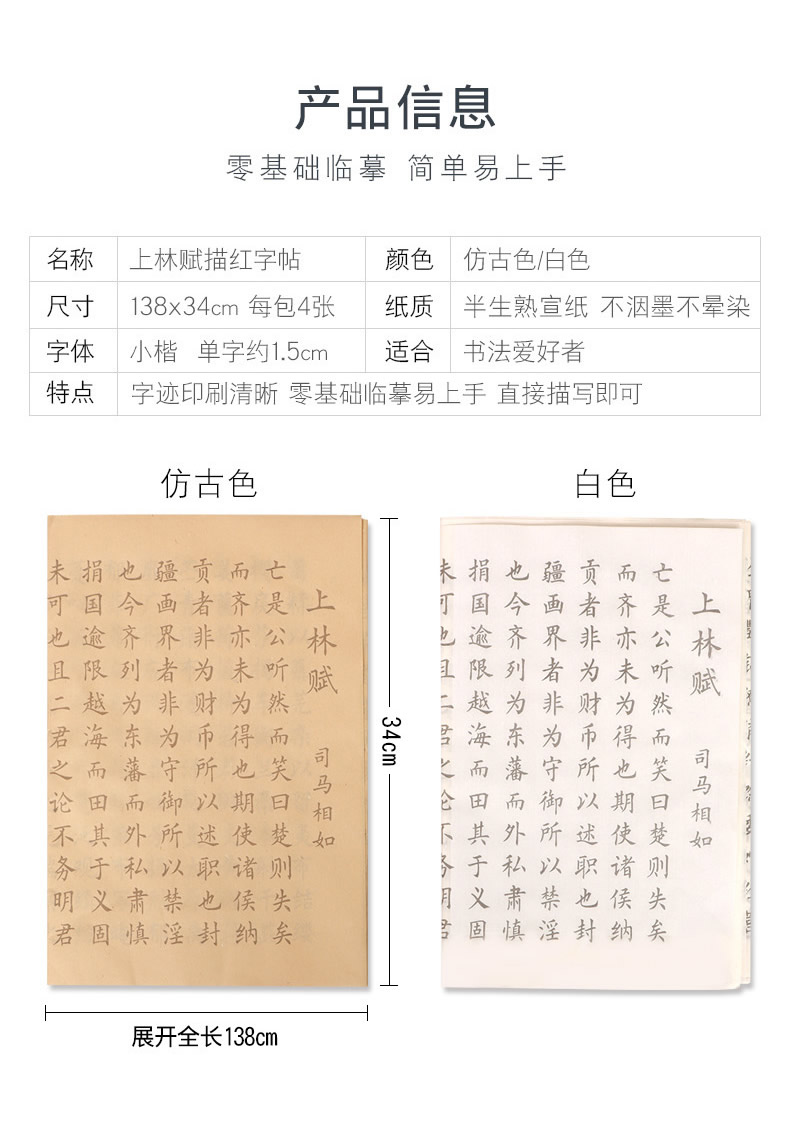 产品信息
零基础临摹 简单易上手
名称 上林赋描红字帖 颜色 仿古色/白色
尺寸 138x34cm 每包4张 纸质 半生熟宣纸 不洇墨不晕染
字体 小楷 单字约1.5cm 适合 书法爱好者
特点 字迹印刷清晰 零基础临摹易上手 直接描写即可
仿古色
上林赋 司马相如
亡是公听然而笑曰楚则失矣
而齐亦未为得也期使诸侯纳
贡者非为财币所以述职也封
疆画界者非为守御所以禁淫
也今齐列为东藩而外私肃慎
捐国逾限越海而田其于义固
未可也且二君之论不务明君
34cm
展开全长138cm
白色
上林赋 司马相如
亡是公听然而笑曰楚则失矣
而齐亦未为得也期使诸侯纳
贡者非为财币所以述职也封
疆画界者非为守御所以禁淫
也今齐列为东藩而外私肃慎
捐国逾限越海而田其于义固
未可也且二君之论不务明君